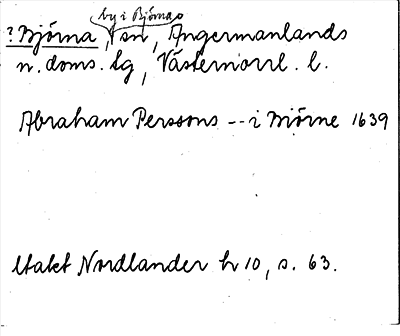 by i Björnas
? Björna, sn, Ångermanlands
n. doms. tg, Västernorrl. l.
Abraham Perssons -- i Biörne 1639
Utakt Nordlander h 10, s. 63.